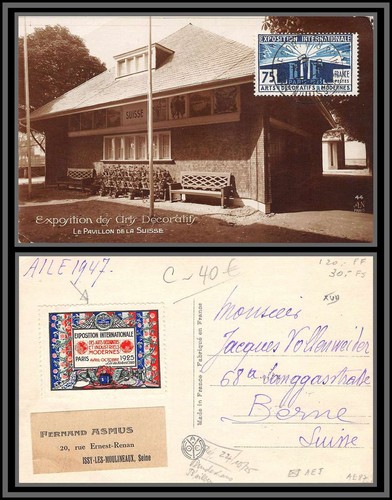 EXPOSITION INTERNATIONALE
75c
FRANCE
POSTES
PARIS-1925
ARTS DÉCORATIFS & MODERNES
SUISSE
44
AN
Exposition des Arts Décoratifs
LE PAVILLON DE LA SUISSE
AILE 1947.
C-40€
120.- FF
30.- FS
EXPOSITION INTERNATIONALE
DES ARTS DÉCORATIFS
ET INDUSTRIELS
MODERNES
PARIS AVRIL-OCTOBRE 1925
Made in France Fabriqué en France
Monsieur
Jacques Vollenweider
68a Langgasstrasse
Berne
Suisse
FERNAND ASMUS
20, rue Ernest-Renan
ISSY-LES-MOULINEAUX, Seine